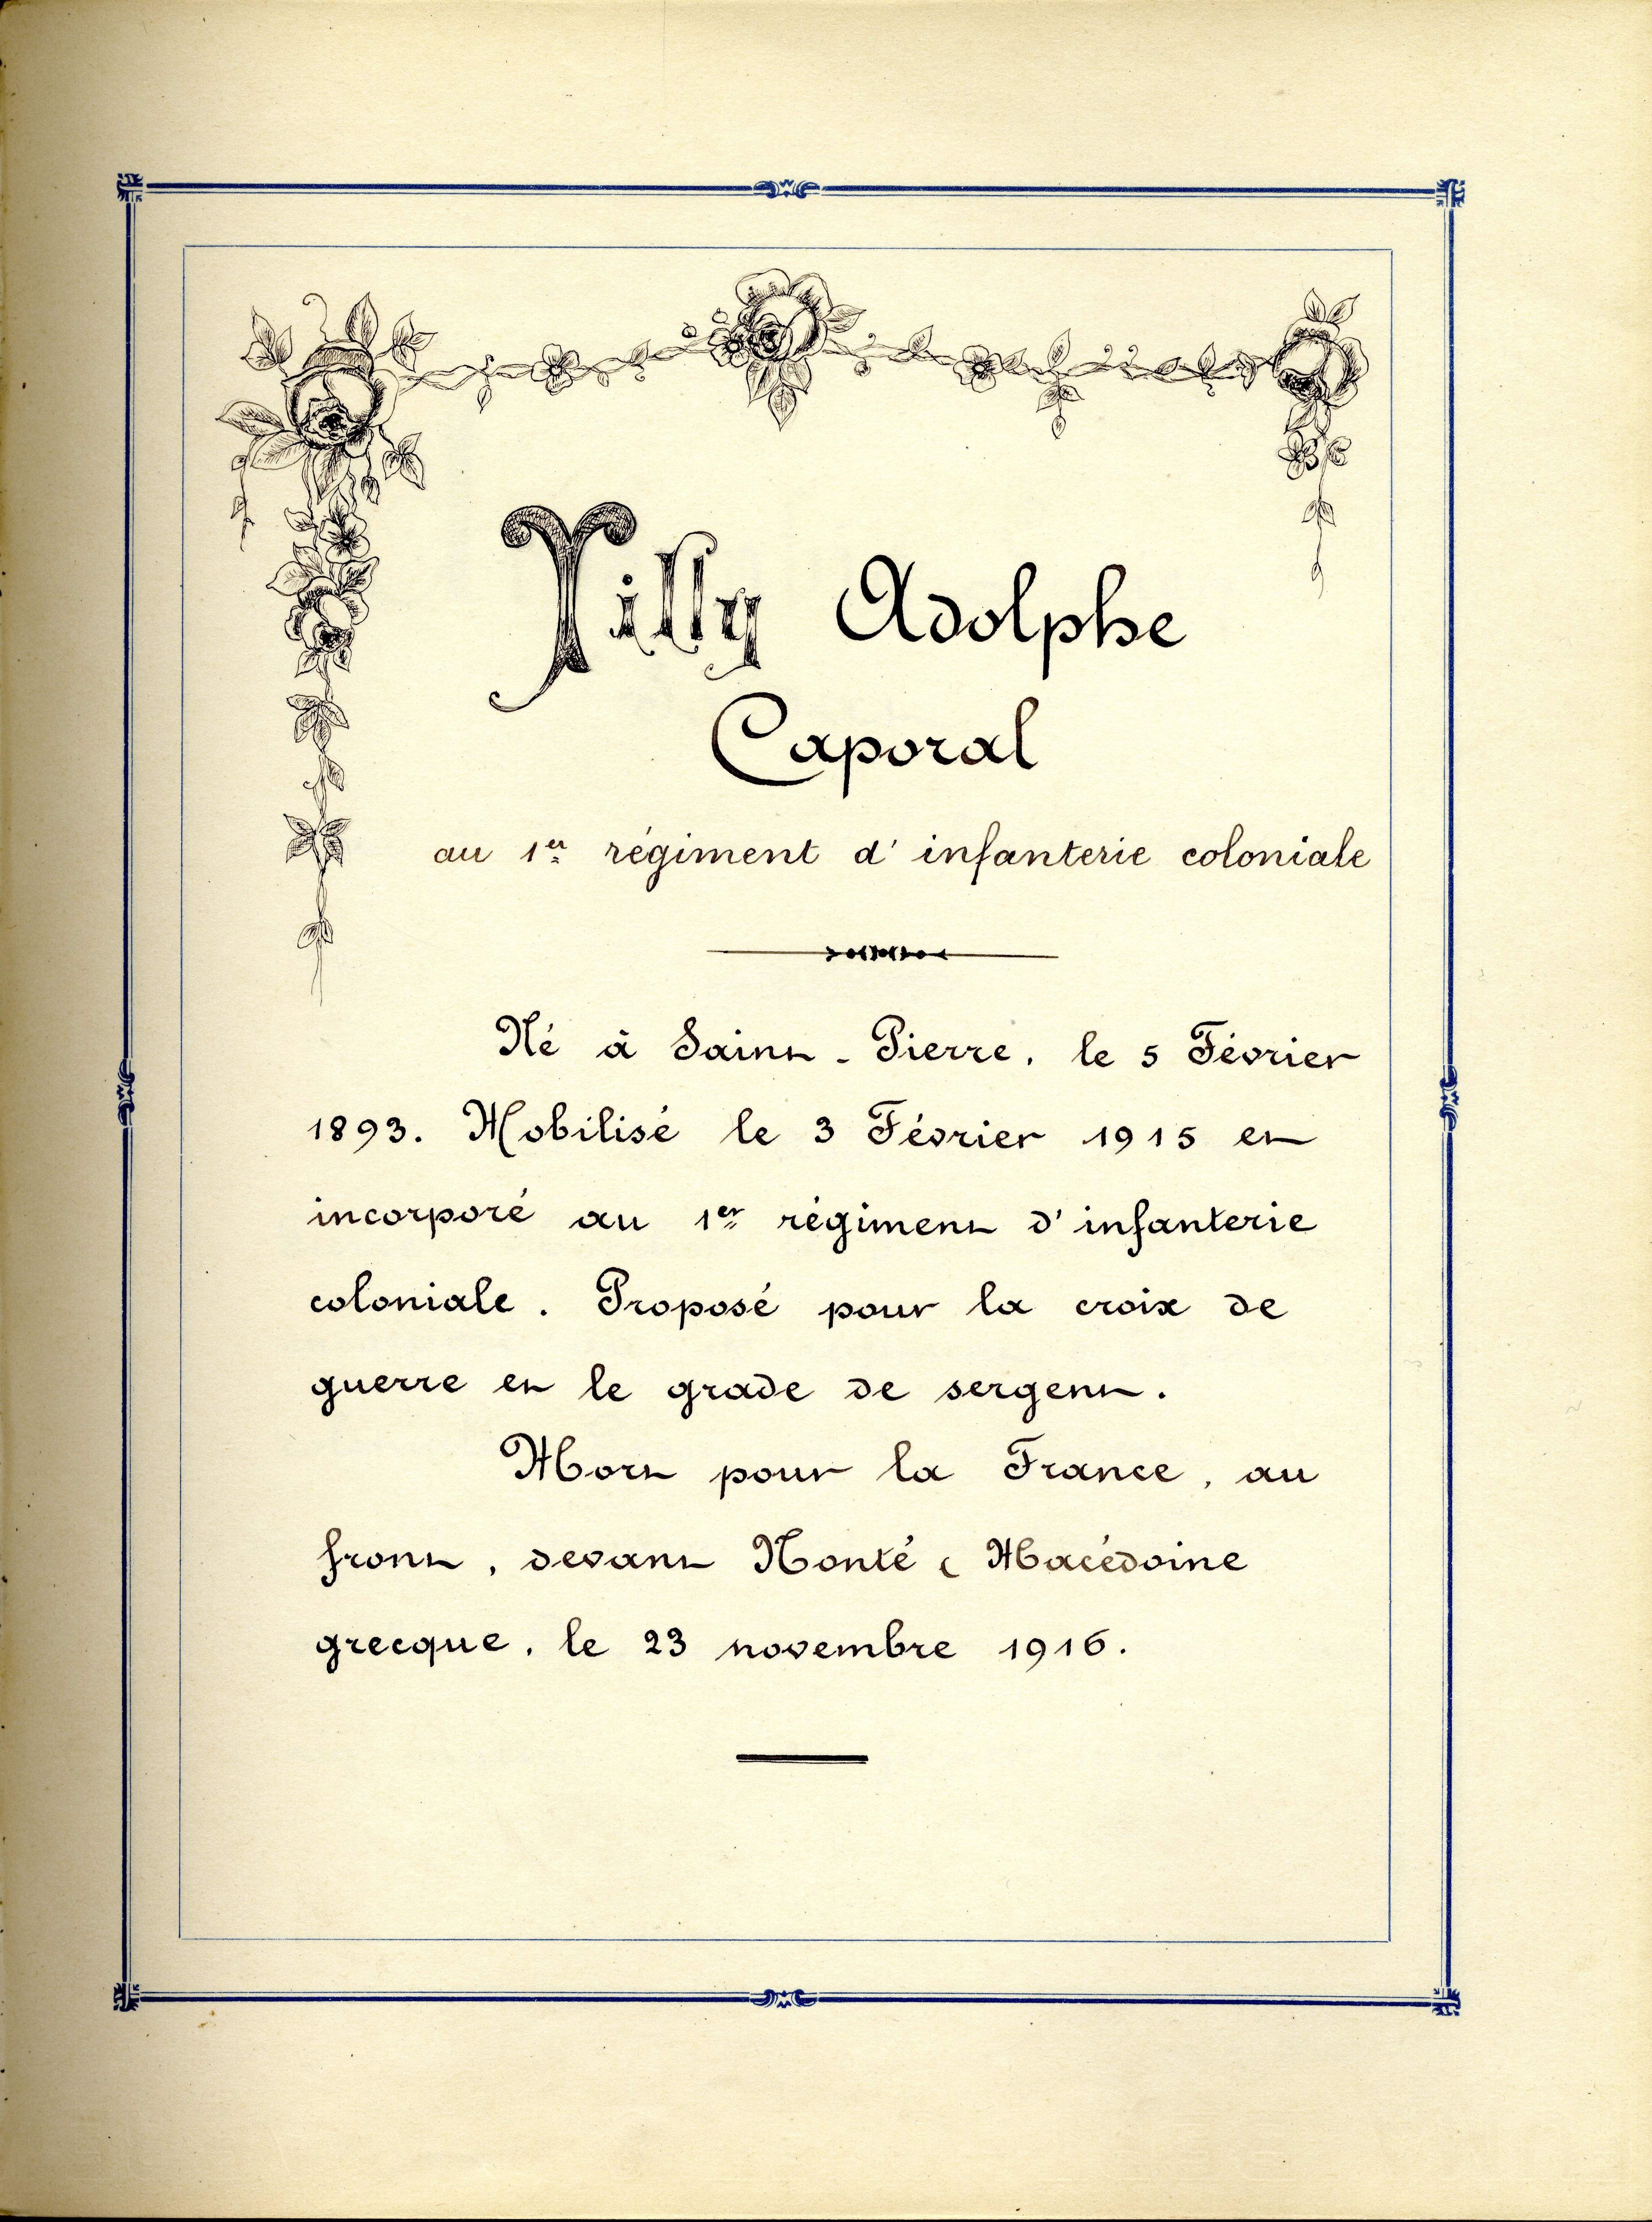 Tilly Adolphe
Caporal
au 1er régiment d'infanterie coloniale
Né à Saint-Pierre, le 5 Février
1893. Mobilisé le 3 Février 1915 et
incorporé au 1er régiment d'infanterie
coloniale. Proposé pour la croix de
guerre et le grade de sergent.
Mort pour la France, au
front, devant Monté ( Macédoine
grecque, le 23 novembre 1916.